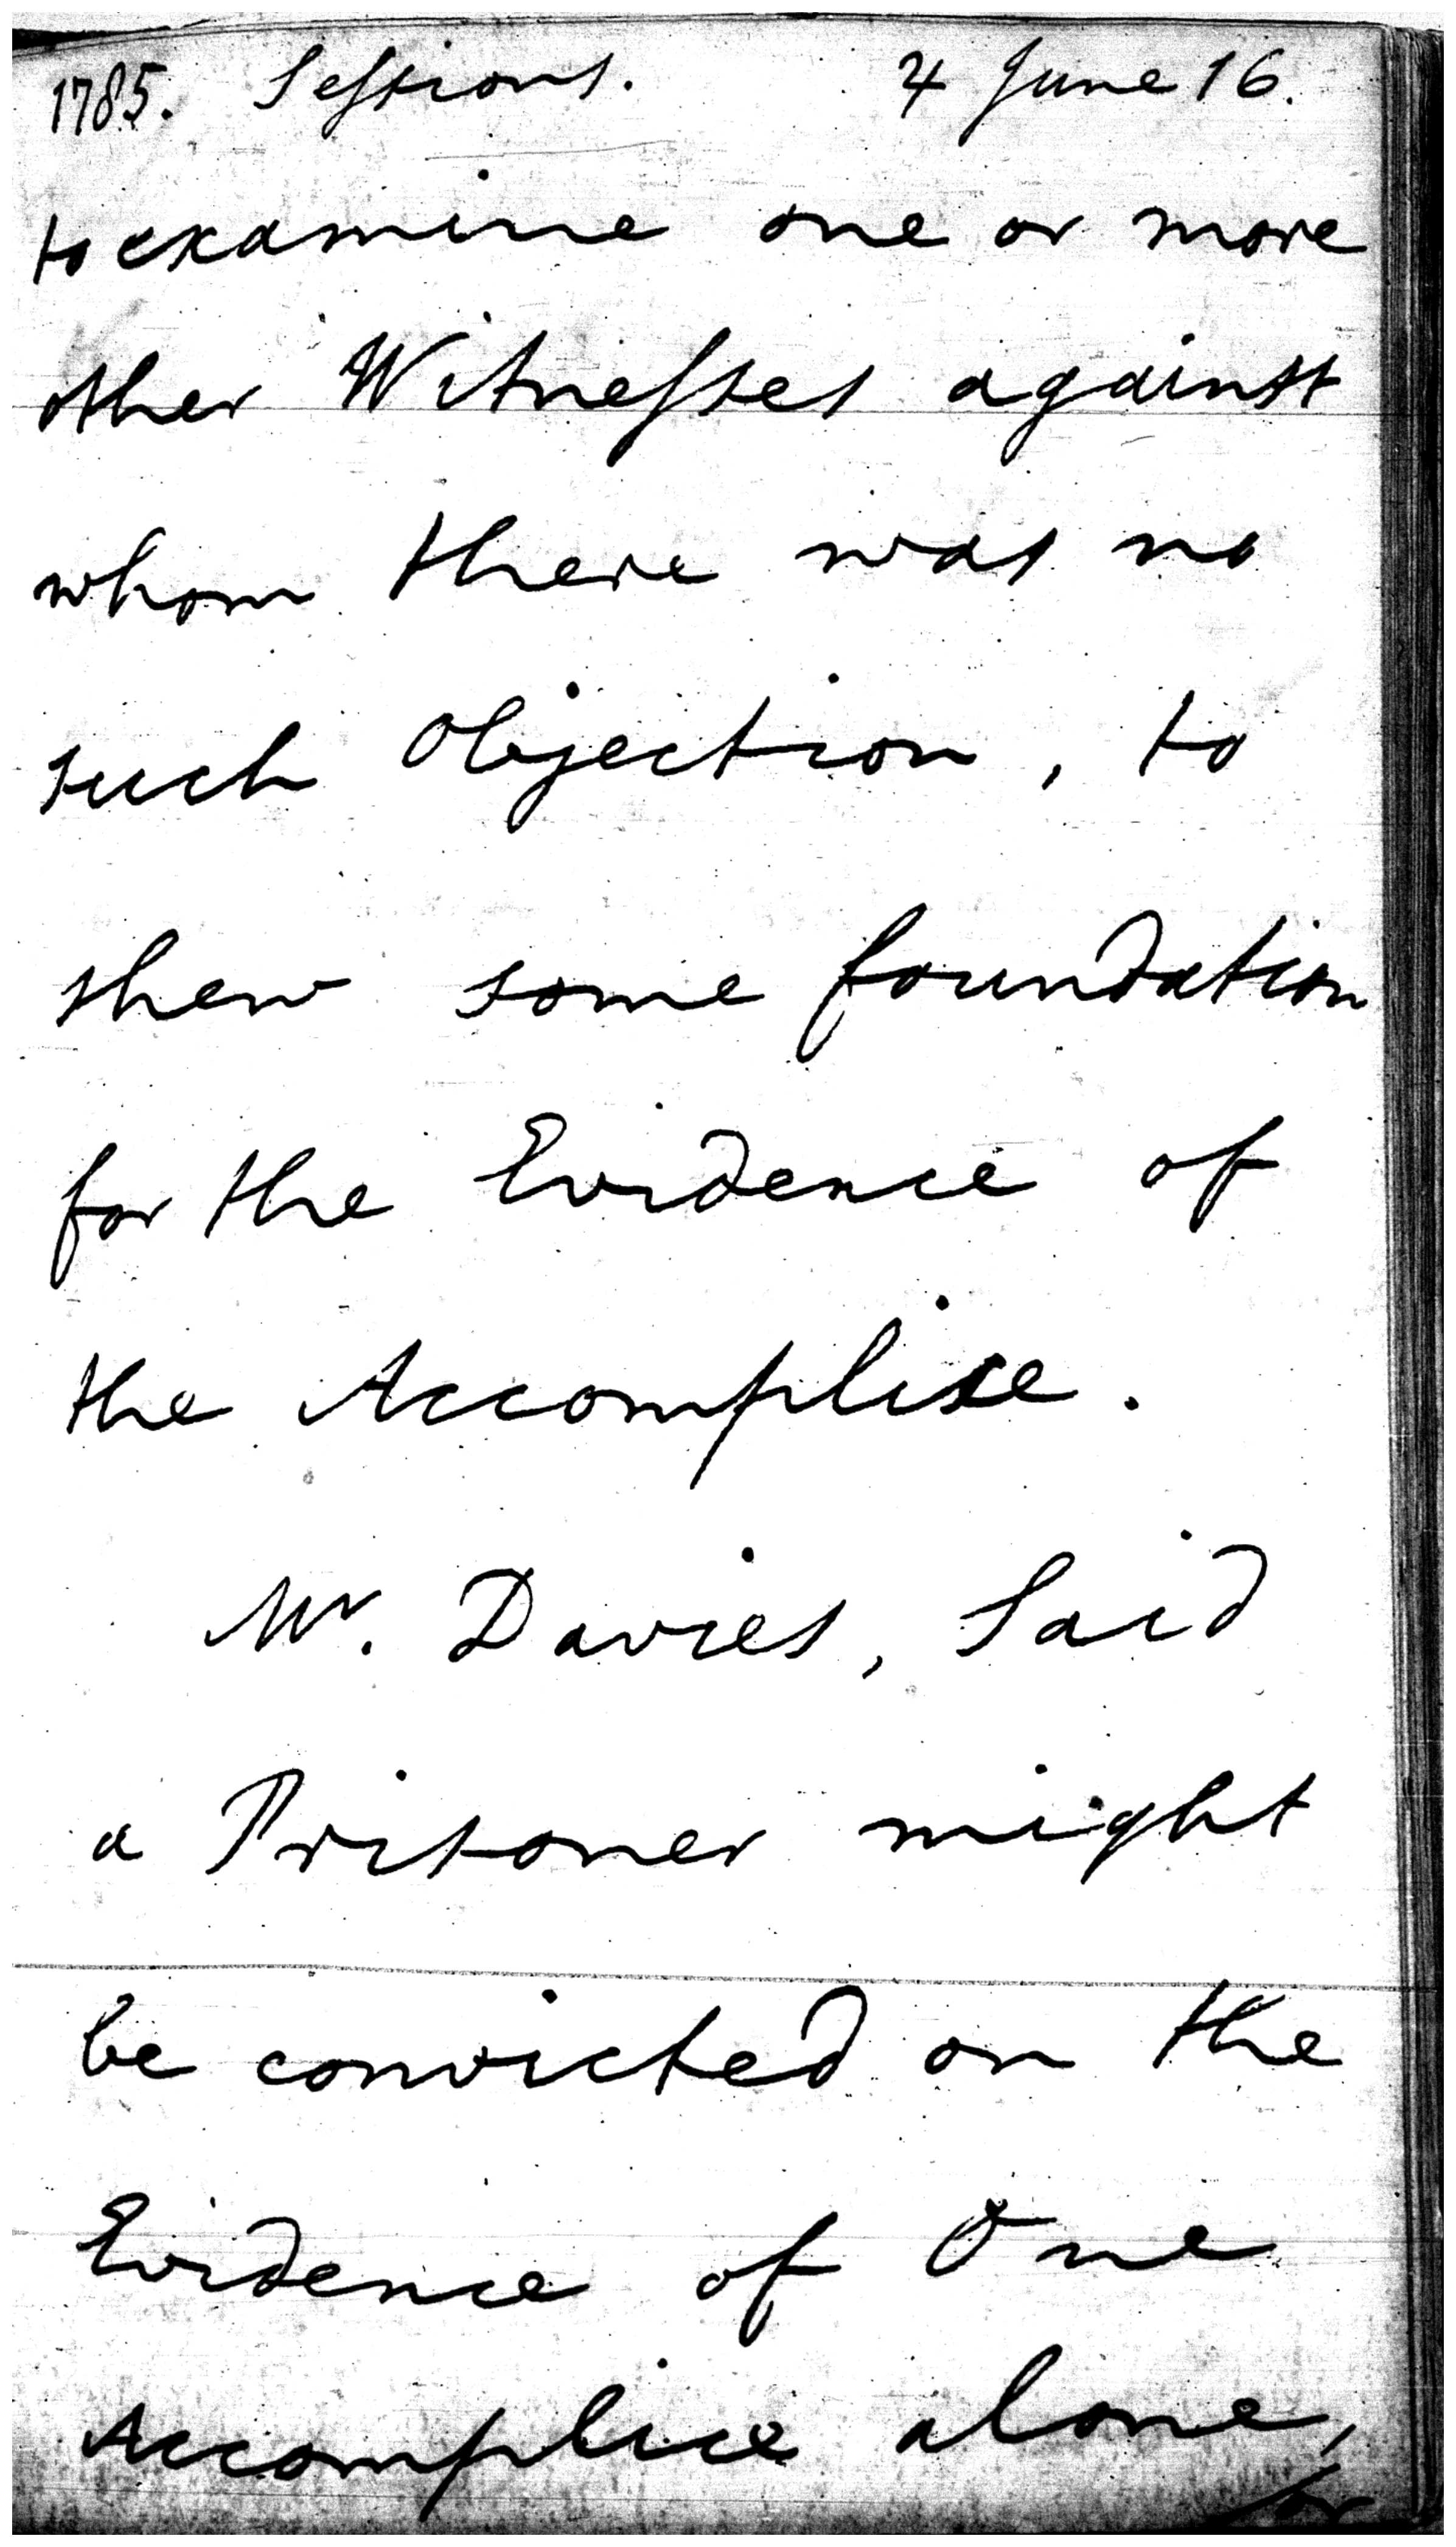 1785. Sessions. 4 June 16.
to examine one or more
other Witnesses against
whom there was no
such Objection, to
shew some foundation
for the Evidence of
the Accomplice.
Mr. Davies, Said
a Prisoner might
be convicted on the
Evidence of One
Accomplice alone,
or